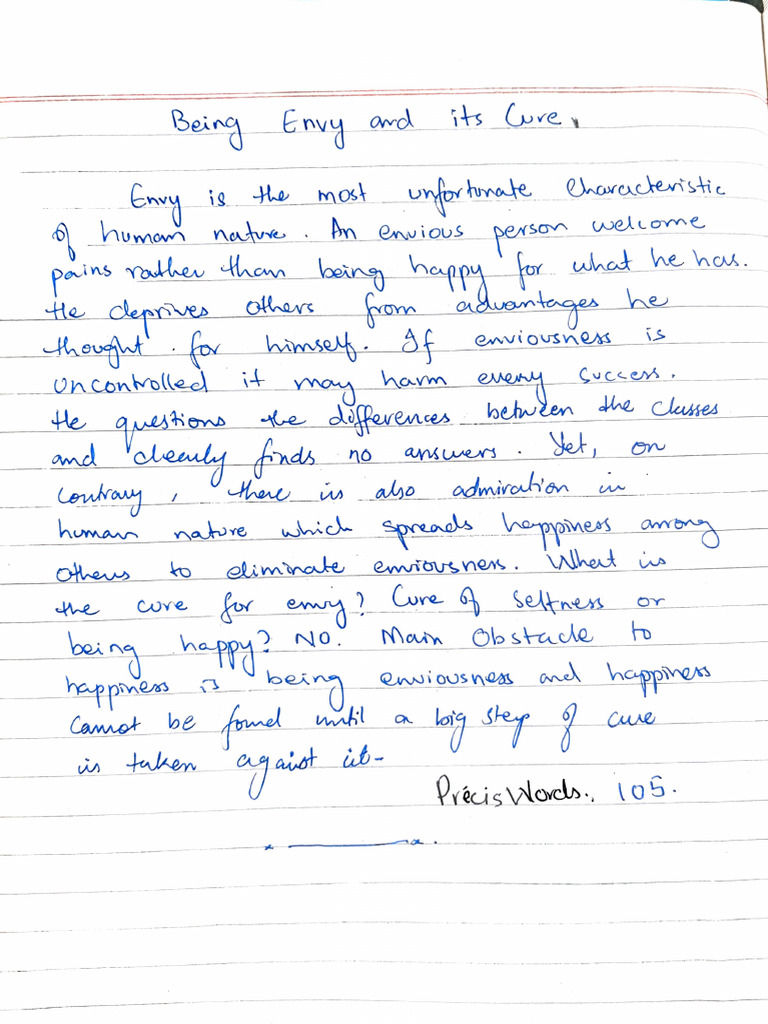 Being Envy and its Cure.
Envy is the most unfortunate characteristic
of human nature. An envious person welcome
pains rather than being happy for what he has.
He deprives others from advantages he
thought for himself. If enviousness is
uncontrolled it may harm every success.
He questions the differences between the classes
and clearly finds no answers. Yet, on
contrary, there is also admiration in
human nature which spreads happiness among
others to eliminate enviousness. What is
the cure for envy? Cure of selfness or
being happy? NO. Main Obstacle to
happiness is being enviousness and happiness
cannot be found until a big step of cure
is taken against it-
Précis Words., 105.